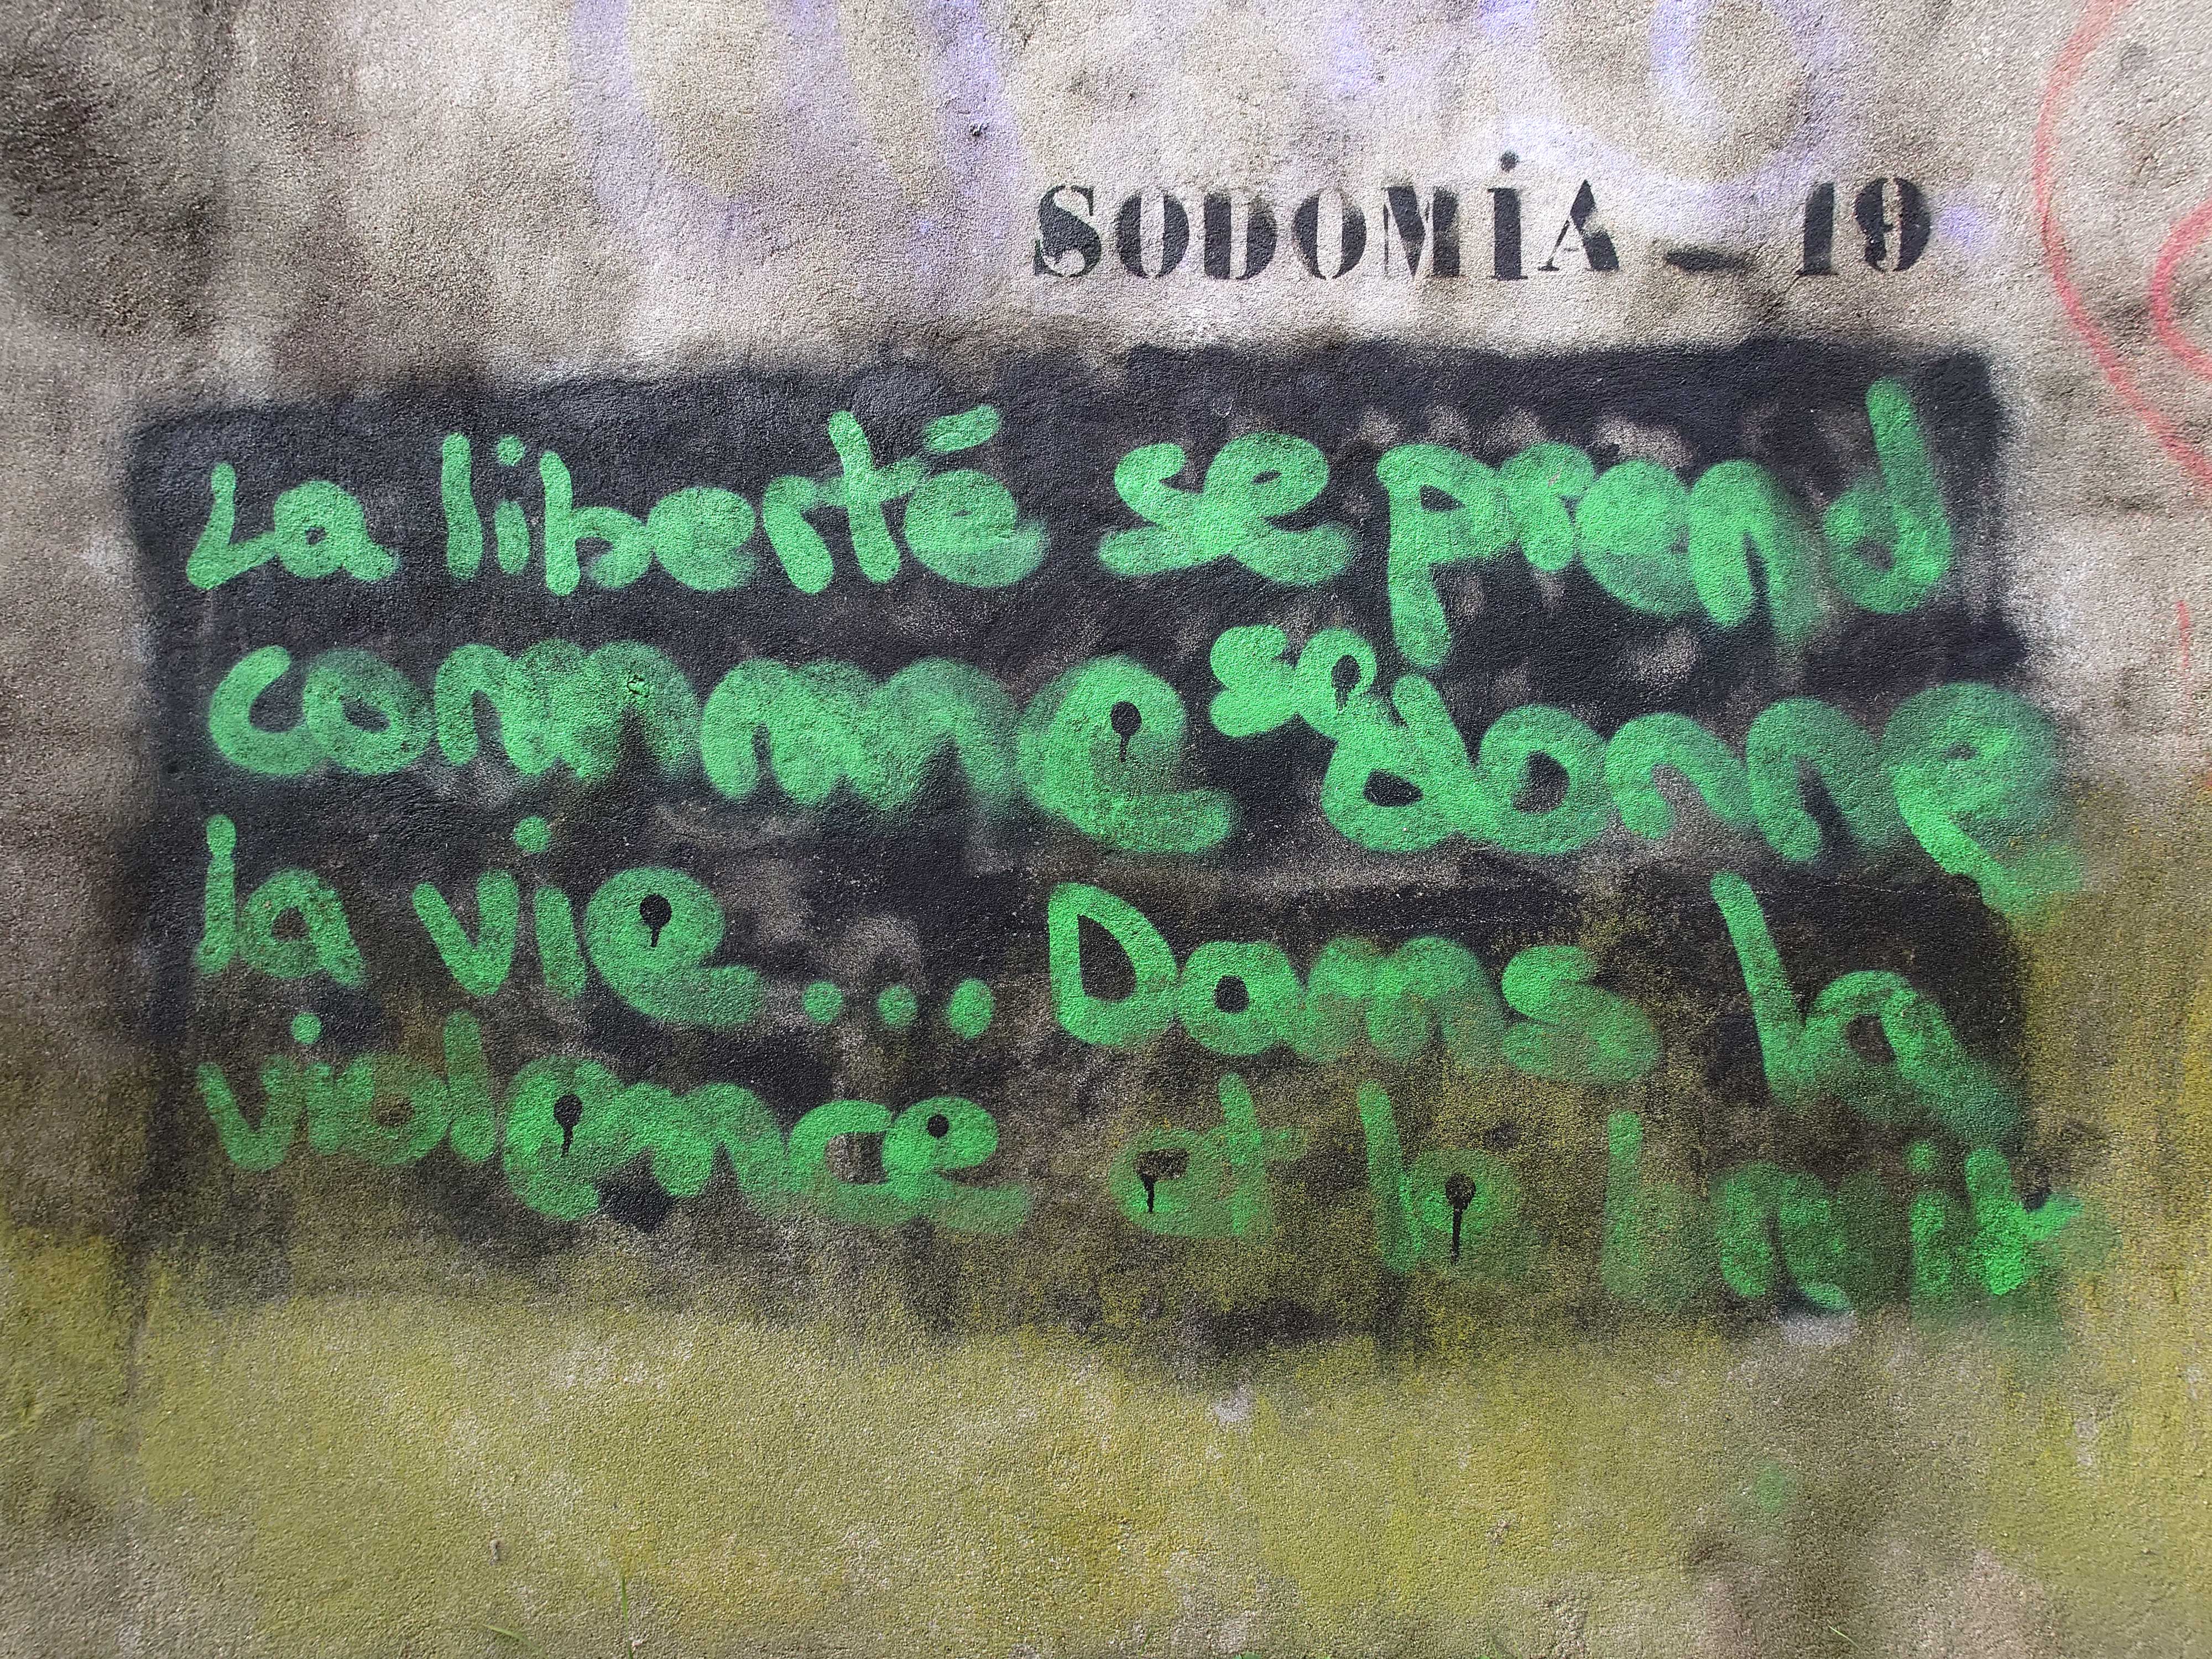 SODOMiA _ 19
La liberté se prend
comme se donne
la vie... Dans la
violence et le